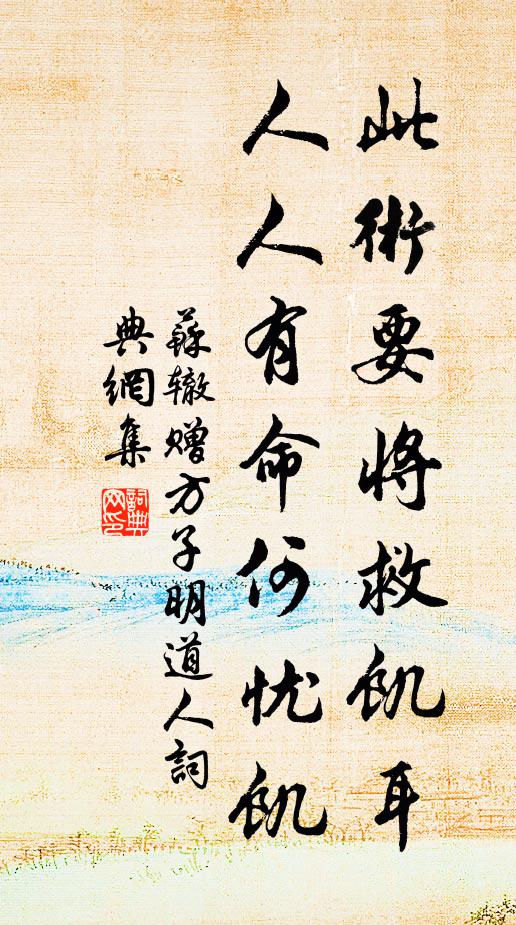 此術要將救飢耳
人人有命何忧飢
蘇辙赠方子明道人詞
典網集
詞典網印